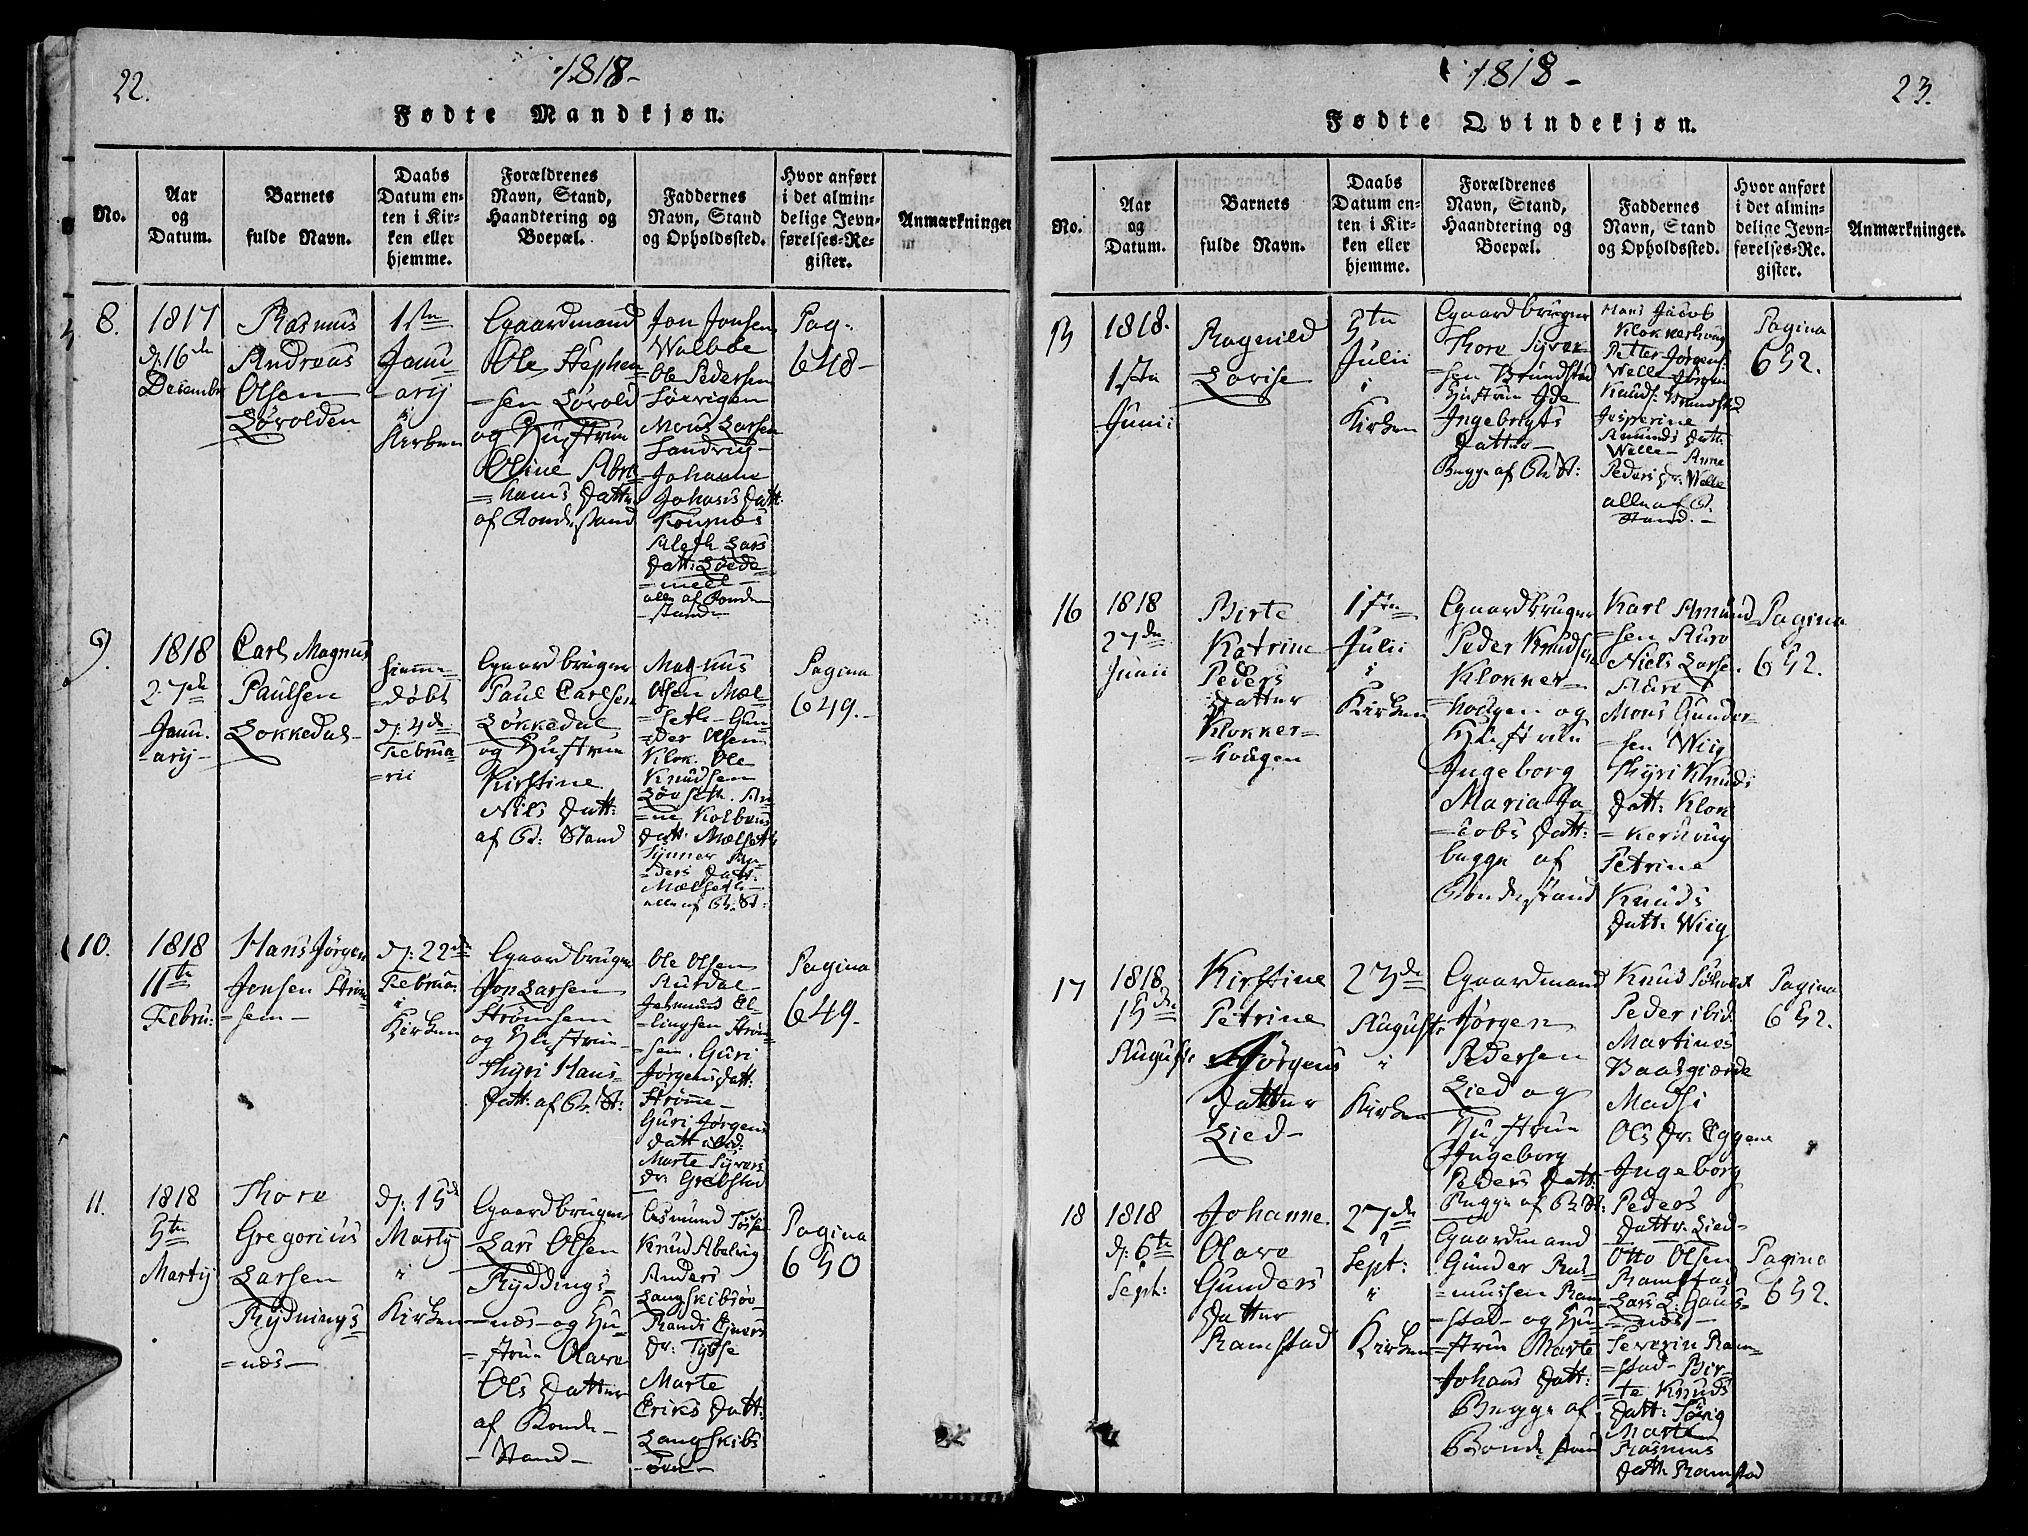 22.
1818-
Fødte Mandkjøn.
No.
Aar
og
Datum.
Barnets
fulde Navn.
Daabs
Datum en-
ten i Kir-
ken eller
hjemme.
Forældrenes
Navn, Stand,
Haandtering og
Boepæl.
Faddernes
Navn, Stand
og Opholdssted.
Hvor anført
i det almin-
delige Jevn-
førelses-Re-
gister.
Anmærkninger
8.
1817
d: 16de
Decembr
Rasmus
Andreas
Olsen
Løvolden
1ste
Janu
-arij
i
Kirken
Gaardmand
Ole Stephen
=sen Løvold
og Hustrue
Oline Abra
=hams Datter
af Bondestand
Jon Jonsen
Walbøe
Ole Pedersen
Mons Larsen
Landvig-
Johanne
Johans Datt:
Aleth Lars
Datt: Løede-
=meel-
alle af Bonde
stande
Pag-
648-
9.
1818
27de
Janu.
-arij-
Carl Magnus
Paulsen
Løkkedal-
hjemme-
døbt
d: 4de
Februa
=rii
Gaardbruger
Paul Carlsen
Løkkedal
og Hustrue
Kirstine
Nils Datt:
af B: Stand
Magnus
Olsen Mæl-
=seth- Gun-
=der Olsen
Klok. Ole
Knudsen
Løvseth. An-
=ne Kolbens
Datt: Mælseth
Synner An-
=ders Datt.
Mælseth-
alle af B: St:
Pagina
649.-
10.
1818
11te
Febru:
Hans Jørgen
Jonsen Strøm
=sem-
d: 22de
Februa.
i
Kirken
Gaardbruger
Jon Larsen
Strømsem
og Hustrue-
Thyri Hans-
Datt: af B: St:
Ole Olsen
Asmund El-
=lingsen Strøm
=sem. Guri
Jørgens Datt:
Strømme-
Guri Jørgens
Datt ibid.
Marte Syvers
Dr: Grebstad
Pagina
649-
11.
1818
5te
Martij
Thore
Gregorius
Larsen
Rydnings-
=næs-
d: 15de
Martij
i
Kirken
Gaardbruger
Lars Olsen
Ryddings-
=næs- og Hu-
=strue Olave
Ols Datter
af Bonde-
-Stand-
Knud Abelvig
Anders
Langskibsøe-
Randi Ejvers
Dr: Tysse
Marte
Eriks Datt:
Langskibs
-øren-
Pagina
650
1818-
23.
Fødte Qvindekjøn.
No.
Aar
og
Datum.
Barnets
fulde Navn.
Daabs
Datum en-
ten i Kir-
ken eller
hjemme.
Forældrenes
Navn, Stand,
Haandtering og
Boepæl.
Faddernes
Navn, Stand
og Opholdssted.
Hvor anført
i det almin-
delige Jevn-
førelses-Re-
gister.
Anmærkninger.
15
1818.
1ste
Junii
Ragnild
Lovise
5te
Julii
i
Kirken
Gaardbruger
Thore Syver
=sen Brundstad
Hustrue Ide
Ingebrigts
Datter
Begge af B: St:
Hans Jacob
Klokkerhoug
Petter Jørgens:
Welle- Jørgen
Knuds: Brundstad
Jesperine
Amunds Datter
Welle- Anne
Peders Dr. Welle
alle af B.
Stand.-
Pagina
652.
16
1818
27de
Junii
Birte
Katrine
Peders
Datter
Klokker-
=hougen
1ste
Julii
i
Kirken
Gaardbruger
Peder Knudsen
Klokker-
=hougen og
Hustrue
Ingeborg
Maria Ja-
=cobs Datt:
begge af
Bondestand
Karl Amund
=sen Aure
Niels Larse.
Aure
Mons Gunder-
=sen Wiig
Thyri Knuds
Datt: Klok
=kerhoug
Petrine
Knuds
Datt: Wiig
Pagina
652.
17
1818
15de
Auguste
Kirstine
Petrine
Jørgens
Datter
Lied-
23de
Auguste
i
Kirken
Gaardmand
Jørgen
Pedersen
Lied og
Hustrue
Ingeborg
Peders Datt:
Begge af B: St:
Knud Søholdt
Peder ibid.
Martinus
Baadsgiærde
Madsi
Ols Dr. Eggene
Ingeborg
Peders
Datter. Lied-
Pagina
652.
18
1818
d: 6te
Sept:
Johanne.
Olave
Gunders
Datter
Ramstad
27de
Sept:
i
Kirken
Gaardmand
Gunder Ras-
=mussen Ram-
=stad- og Hu-
=strue Marte
Johans Datt:
Begge af
Bondestand
Otto Olsen
Ramstad
Lars L: Gaus-
=næs-
Severin Ram-
=stad- Bir-
=te Knuds
Datt: Søvig
Marte
Rasmus
Datt: Ramstad
Pagina
652.